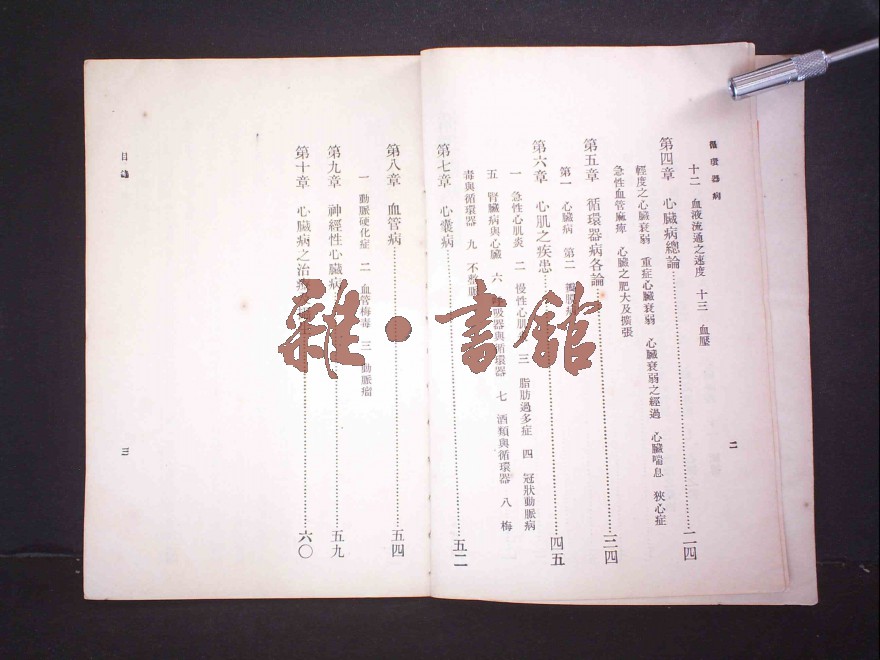 循環器病
十二 血液流通之速度 十三 血壓
第四章 心臟病總論…………二四
輕度之心臟衰弱 重症心臟衰弱 心臟衰弱之經過 心臟喘息 狹心症
急性血管麻痺 心臟之肥大及擴張
第五章 循環器病各論…………三四
第一 心臟病 第二 瓣膜病
第六章 心肌之疾患…………四五
一 急性心肌炎 二 慢性心肌 三 脂肪過多症 四 冠狀動脈病
五 腎臟病與心臟 六 吸器與循環器 七 酒類與循環器 八 梅
毒與循環器 九 不整脈
第七章 心囊病…………五二
二
第八章 血管病…………五四
一 動脈硬化症 二 血管梅毒 三 動脈瘤
第九章 神經性心臟病…………五九
第十章 心臟病之治…………六〇
目錄
三
雜·書館